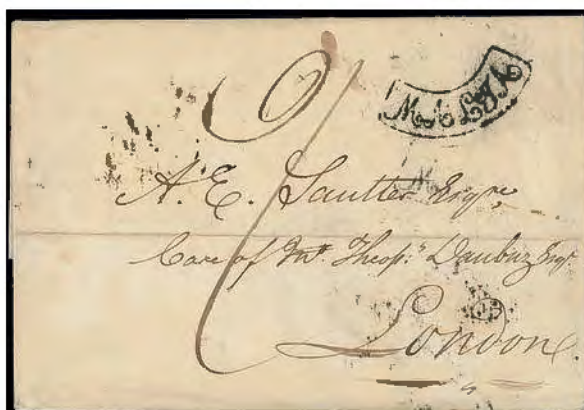 MALTA
A. E. Sautter Esqre
Care of Mr. Theop.s Daubuz Esqr.
London